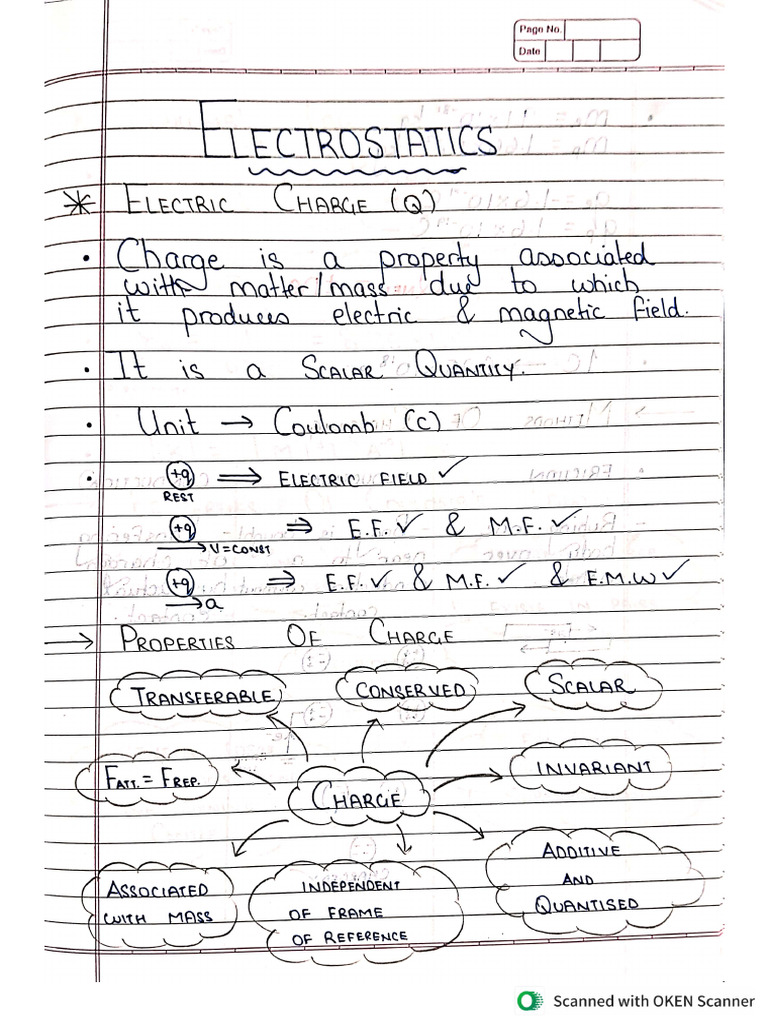 Page No.
Date
ELECTROSTATICS
* ELECTRIC CHARGE (Q)
• Charge is a property associated
with matter/mass due to which
it produces electric & magnetic field.
• It is a SCALAR QUANTITY.
• Unit → Coulomb (C)
• +q ⇒ ELECTRIC FIELD ✓
REST
+q ⇒ E.F. ✓ & M.F. ✓
→ V=CONST
+q ⇒ E.F. ✓ & M.F. ✓ & E.M.W ✓
→ a
→ PROPERTIES OF CHARGE
TRANSFERABLE CONSERVED SCALAR
FATT. = FREP. CHARGE INVARIANT
ASSOCIATED
WITH MASS
INDEPENDENT
OF FRAME
OF REFERENCE
ADDITIVE
AND
QUANTISED
Scanned with OKEN Scanner